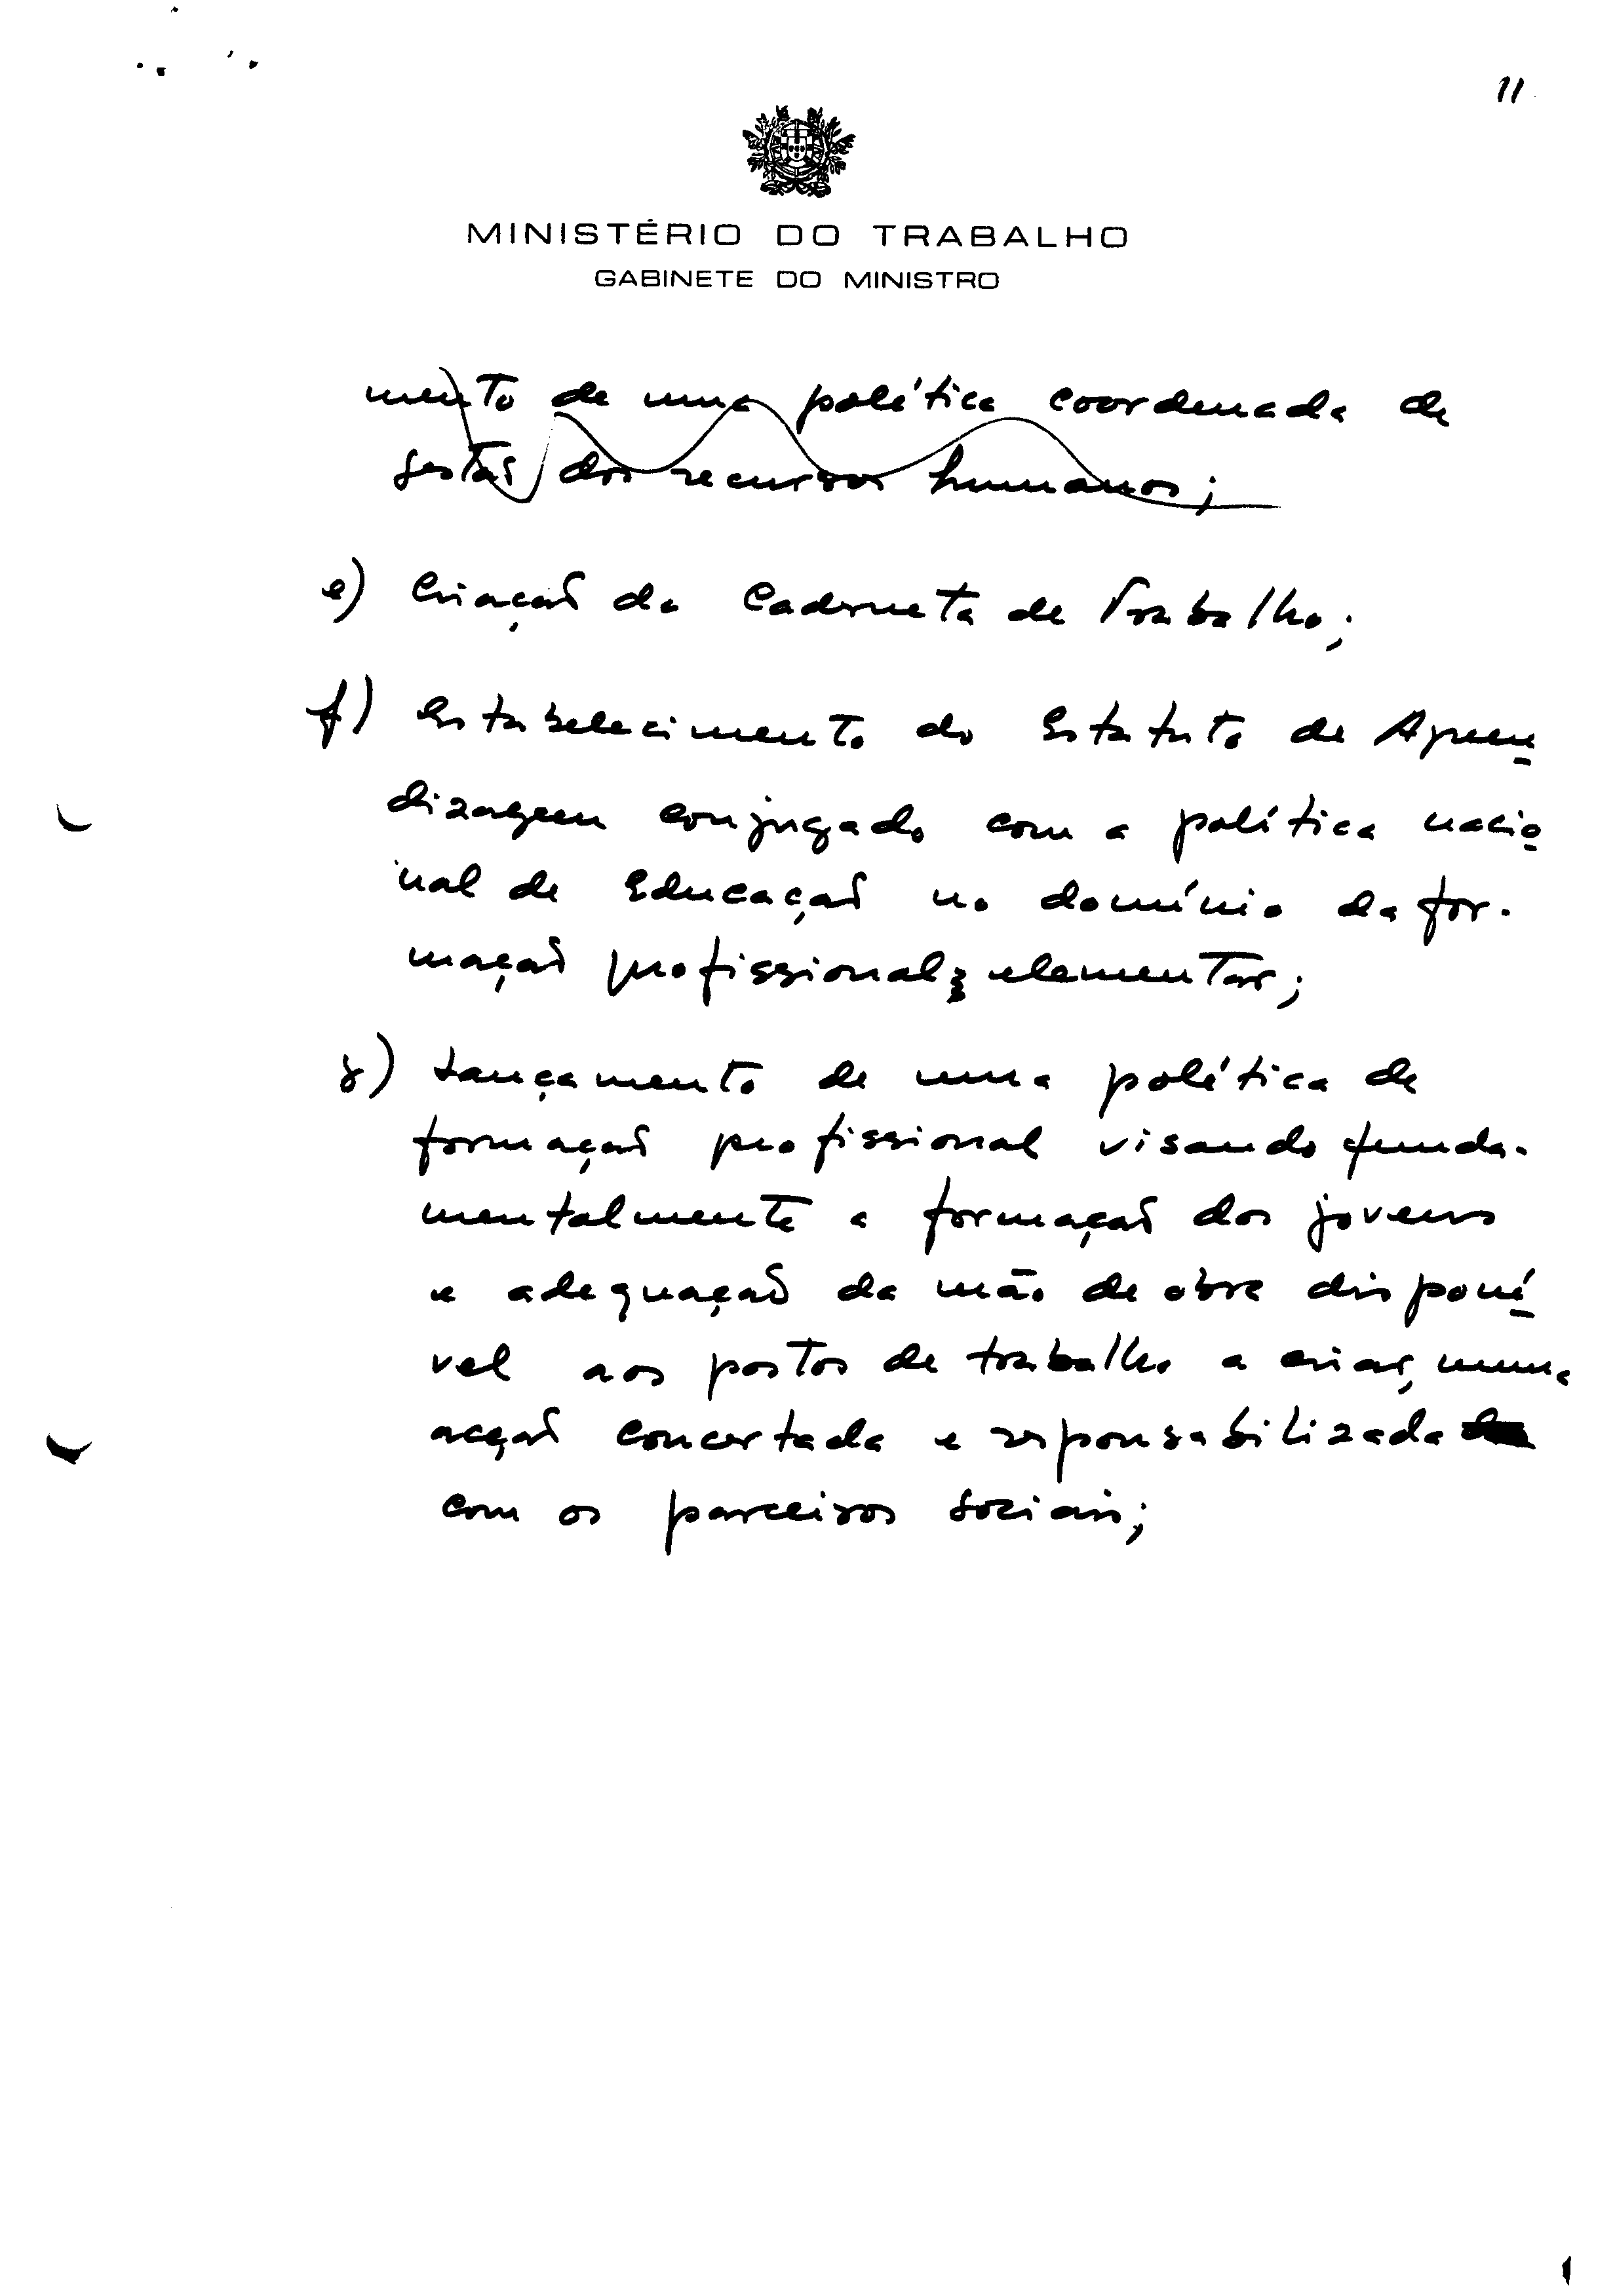 11
MINISTÉRIO DO TRABALHO
GABINETE DO MINISTRO
mento de uma política coordenada de
gestão dos recursos humanos;
e) Criação da Caderneta de Trabalho;
f) Estabelecimento do Estatuto de Apren
dizagem conjugado com a política nacio
nal de Educação no domínio da for-
mação profissional elementar;
g) Lançamento de uma política de
formação profissional visando funda-
mentalmente a formação dos jovens
e adequação da mão de obra disponí
vel aos postos de trabalho a criar, numa
acção concertada e responsabilizada
com os parceiros sociais;